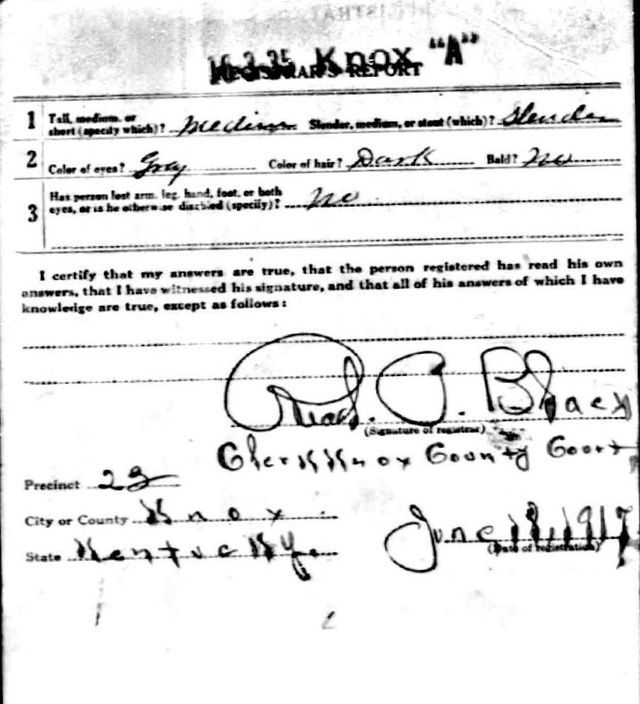 16-3-35 Knox "A"
REGISTRAR'S REPORT
1 Tall, medium, or short (specify which)? Medium Slender, medium, or stout (which)? Slender
2 Color of eyes? Gray Color of hair? Dark Bald? No
3 Has person lost arm, leg, hand, foot, or both
eyes, or is he otherwise disabled (specify)? No
I certify that my answers are true, that the person registered has read his own
answers, that I have witnessed his signature, and that all of his answers of which I have
knowledge are true, except as follows:
Read. P. Black
(Signature of registrar)
Clerk Knox County Court
Precinct
City or County Knox
State Kentucky.
June 18, 1917
(Date of registration)